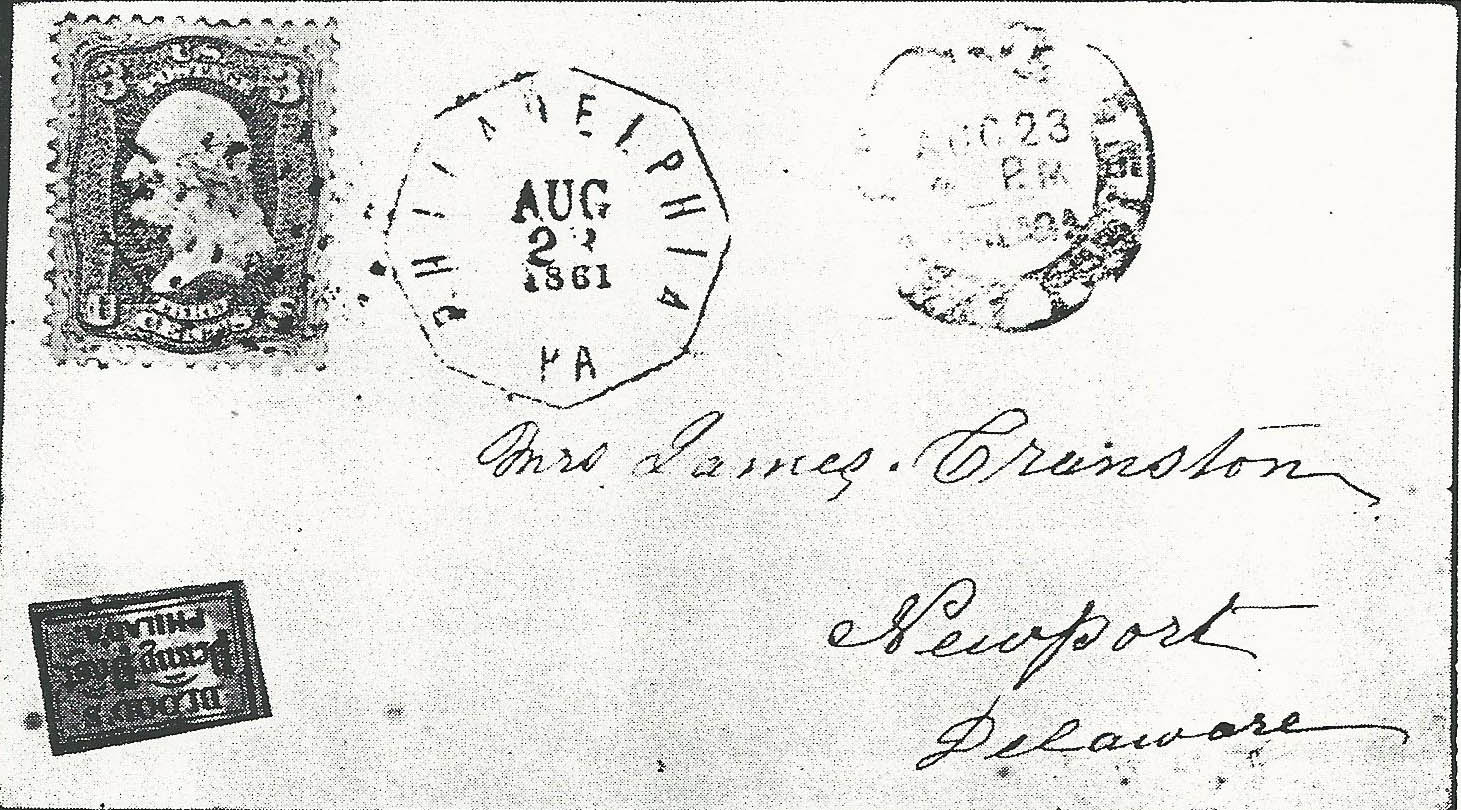 U S
POSTAGE
3 3
THREE
U CENTS S
PHILADELPHIA
AUG
1861
PA
AUG 23
P.M
PHILADA
Mrs James. Cranston
Newport
Delaware
BLOOD'S
Penny Post
PHILADA